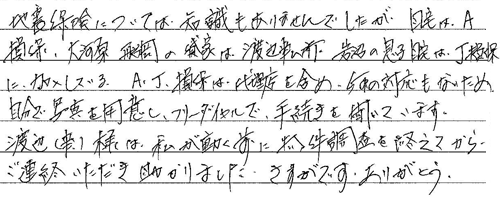 地震保険については、知識もありませんでしたが、自宅は、A
損保、大河原、飛岡の貸家は、渡辺事ム所、岩沼の息子宅は、J損保
に、加入している。A、J、損保は、代理店を含め、今の対応もないため、
自分で写真を用意し、フリーダイヤルで、手続きを聞いています。
渡辺(事)様は、私が動く前に物件調査を終えてから
ご連絡いただき助かりました。さすがです。ありがとう。